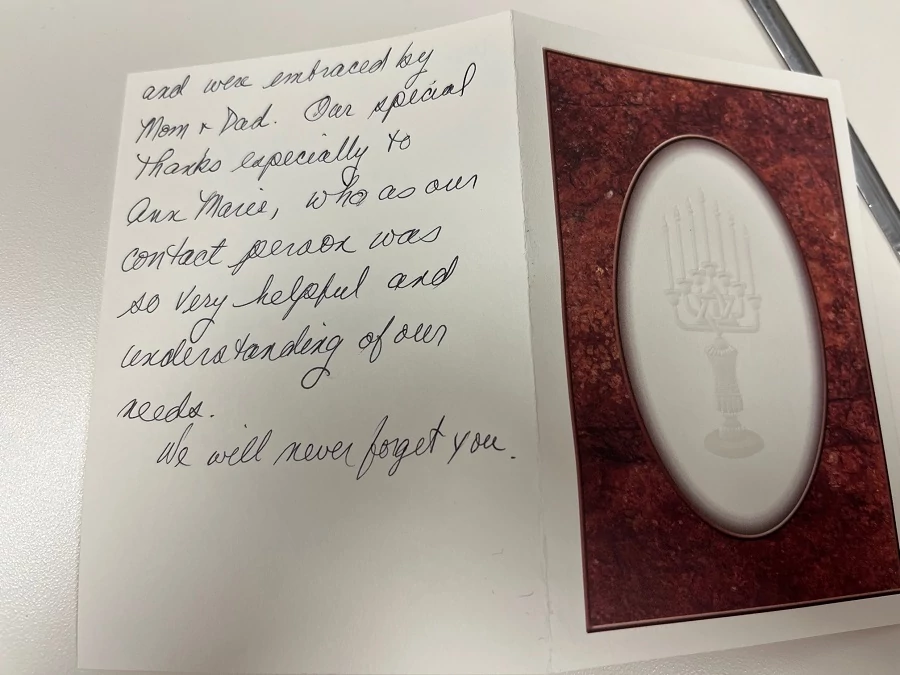 and were embraced by
Mom & Dad. Our special
thanks especially to
Ann Marie, who as our
contact person was
so very helpful and
understanding of our
needs.
We will never forget you.